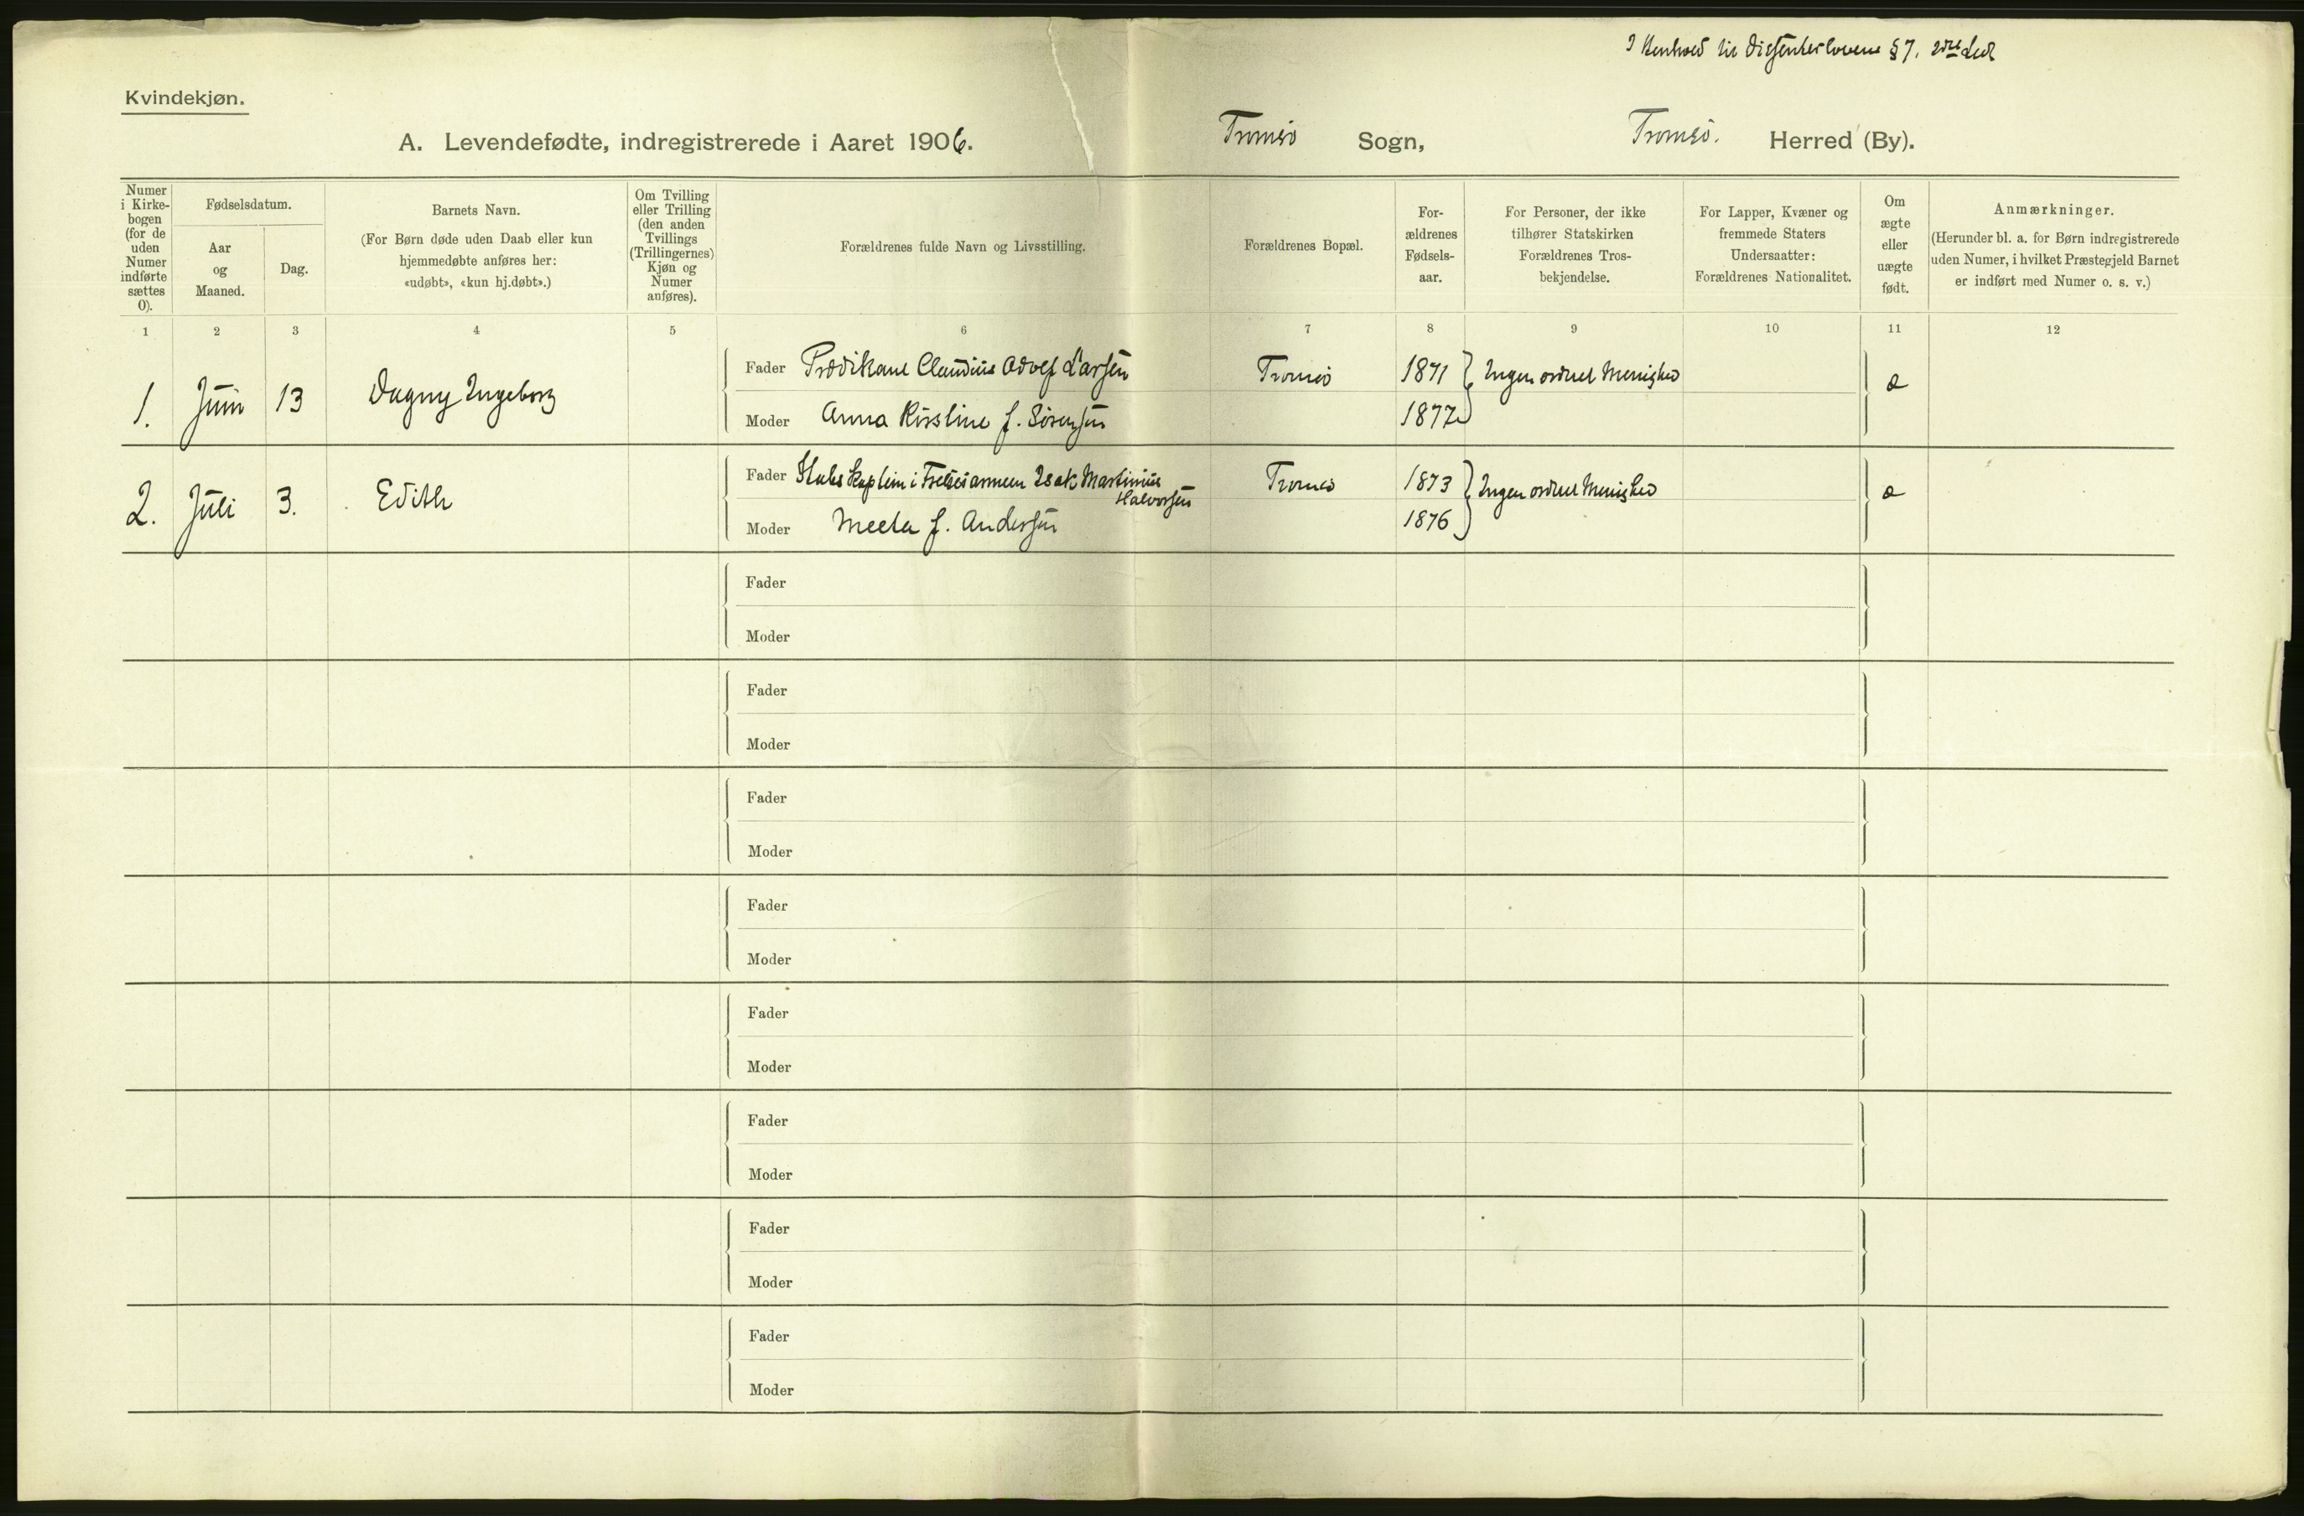 I Henhold til Dissenterlovens § 7, 2det Led
Kvindekjøn.
A. Levendefødte, indregistrerede i Aaret 1906. Tromsø Sogn, Tromsø. Herred (By).
Numer
i Kirke-
bogen
(for de
uden
Numer
indførte
sættes
0).
Fødselsdatum.
Aar
og
Maaned.
Dag.
Barnets Navn.
(For Børn døde uden Daab eller kun
hjemmedøbte anføres her:
«udøbt», «kun hj.døbt».)
Om Tvilling
eller Trilling
(den anden
Tvillings
(Trillingernes)
Kjøn og
Numer
anføres).
Forældrenes fulde Navn og Livsstilling.
Forældrenes Bopæl.
For-
ældrenes
Fødsels-
aar.
For Personer, der ikke
tilhører Statskirken
Forældrenes Tros-
bekjendelse.
For Lapper, Kvæner og
fremmede Staters
Undersaatter:
Forældrenes Nationalitet.
Om
ægte
eller
uægte
født.
Anmærkninger.
(Herunder bl. a. for Børn indregistrerede
uden Numer, i hvilket Præstegjeld Barnet
er indført med Numer o. s. v.)
1 2 3 4 5 6 7 8 9 10 11 12
1. Juni 13 Dagny Ingeborg
Fader Prædikant Claudius Adolf Larsen Tromsø 1871 Ingen ordnet Menighed æ
Moder Anna Kirstine f. Sørensen 1877
2. Juli 3. Edith
Fader Stabskaptein i Frelsesarmeen Isak Martinius
Halvorsen Tromsø 1873 Ingen ordnet Menighed æ
Moder Meeta f. Andersen 1876
Fader
Moder
Fader
Moder
Fader
Moder
Fader
Moder
Fader
Moder
Fader
Moder
Fader
Moder
Fader
Moder